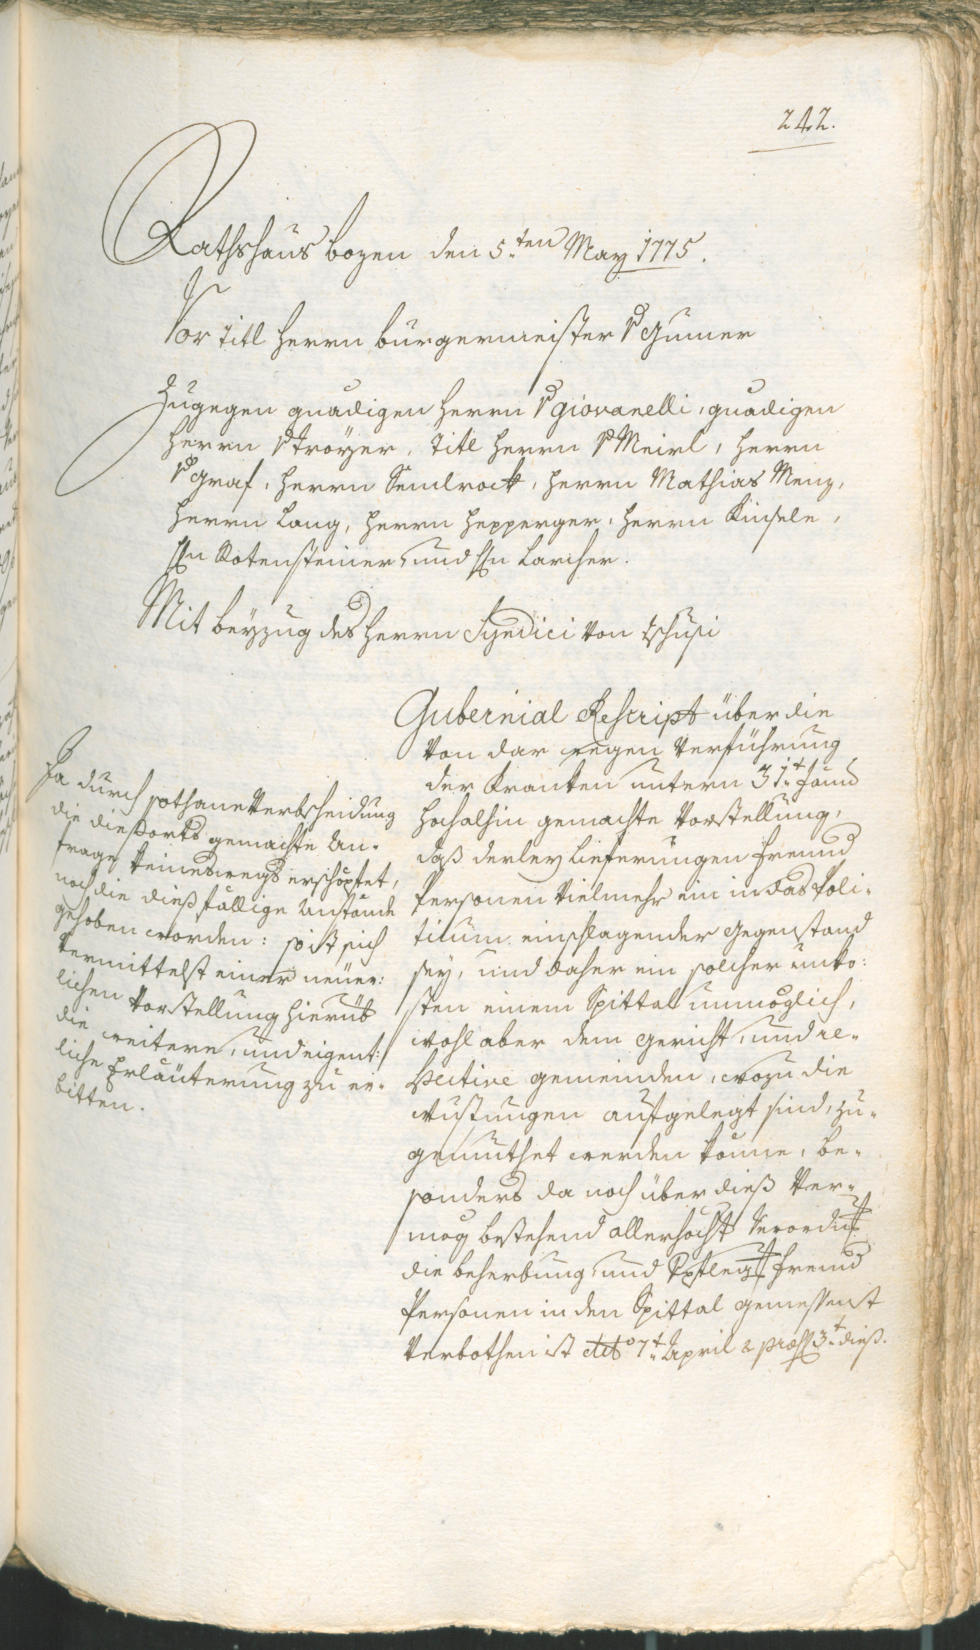 242.
Rathshaus Bozen den 5.ten May 1775.
Vor Titl Herrn Burgermeister v Gumer
Zugegen gnädigen Herrn v Giovanelli, gnädigen
Herrn v Troÿer, Titl Herrn v Meirl, Herrn
v Graf, Herrn Semlrock, Herrn Mathias Menz,
Herrn Lang, Herrn Hepperger, Herrn Kinsele,
Hn Rotensteiner, und Hn Larcher.
Mit beÿzug des Herrn Syndici von Tschusi
Gubernial Rescript über die
von dar wegen Verführung
der Kranken untern 31t Jäner
hochalhin gemachte Vorstellung,
daß derley Lieferungen fremd
Personen vielmehr ein in das Poli-
ticum einschlagender Gegenstand
sey, und daher ein solcher Unko:
sten einem Spittal unmöglich,
wohl aber dem Gericht, und re-
spective Gemeinden, wozu die
Wustungen aufgelegt sind, zu-
gemuthet werden könne, be-
sonders da noch über dieß ver-
mög bestehend allerhöchst Verordn
die Beherbung und fremd
Personen in den Spittal gemessenst
verbothen ist dto 7t April & praes 3t dieß.
Da durch sothane Verbscheidung
die dießorts gemachte An-
frage keineswegs erschöpfet,
noch die dießfällige Anstände
gehoben worden: so ist sich
vermittelst einer neuer:
lichen Vorstellung hierüb
die weitere, und eigent:
liche Erläuterung zu er-
bitten.